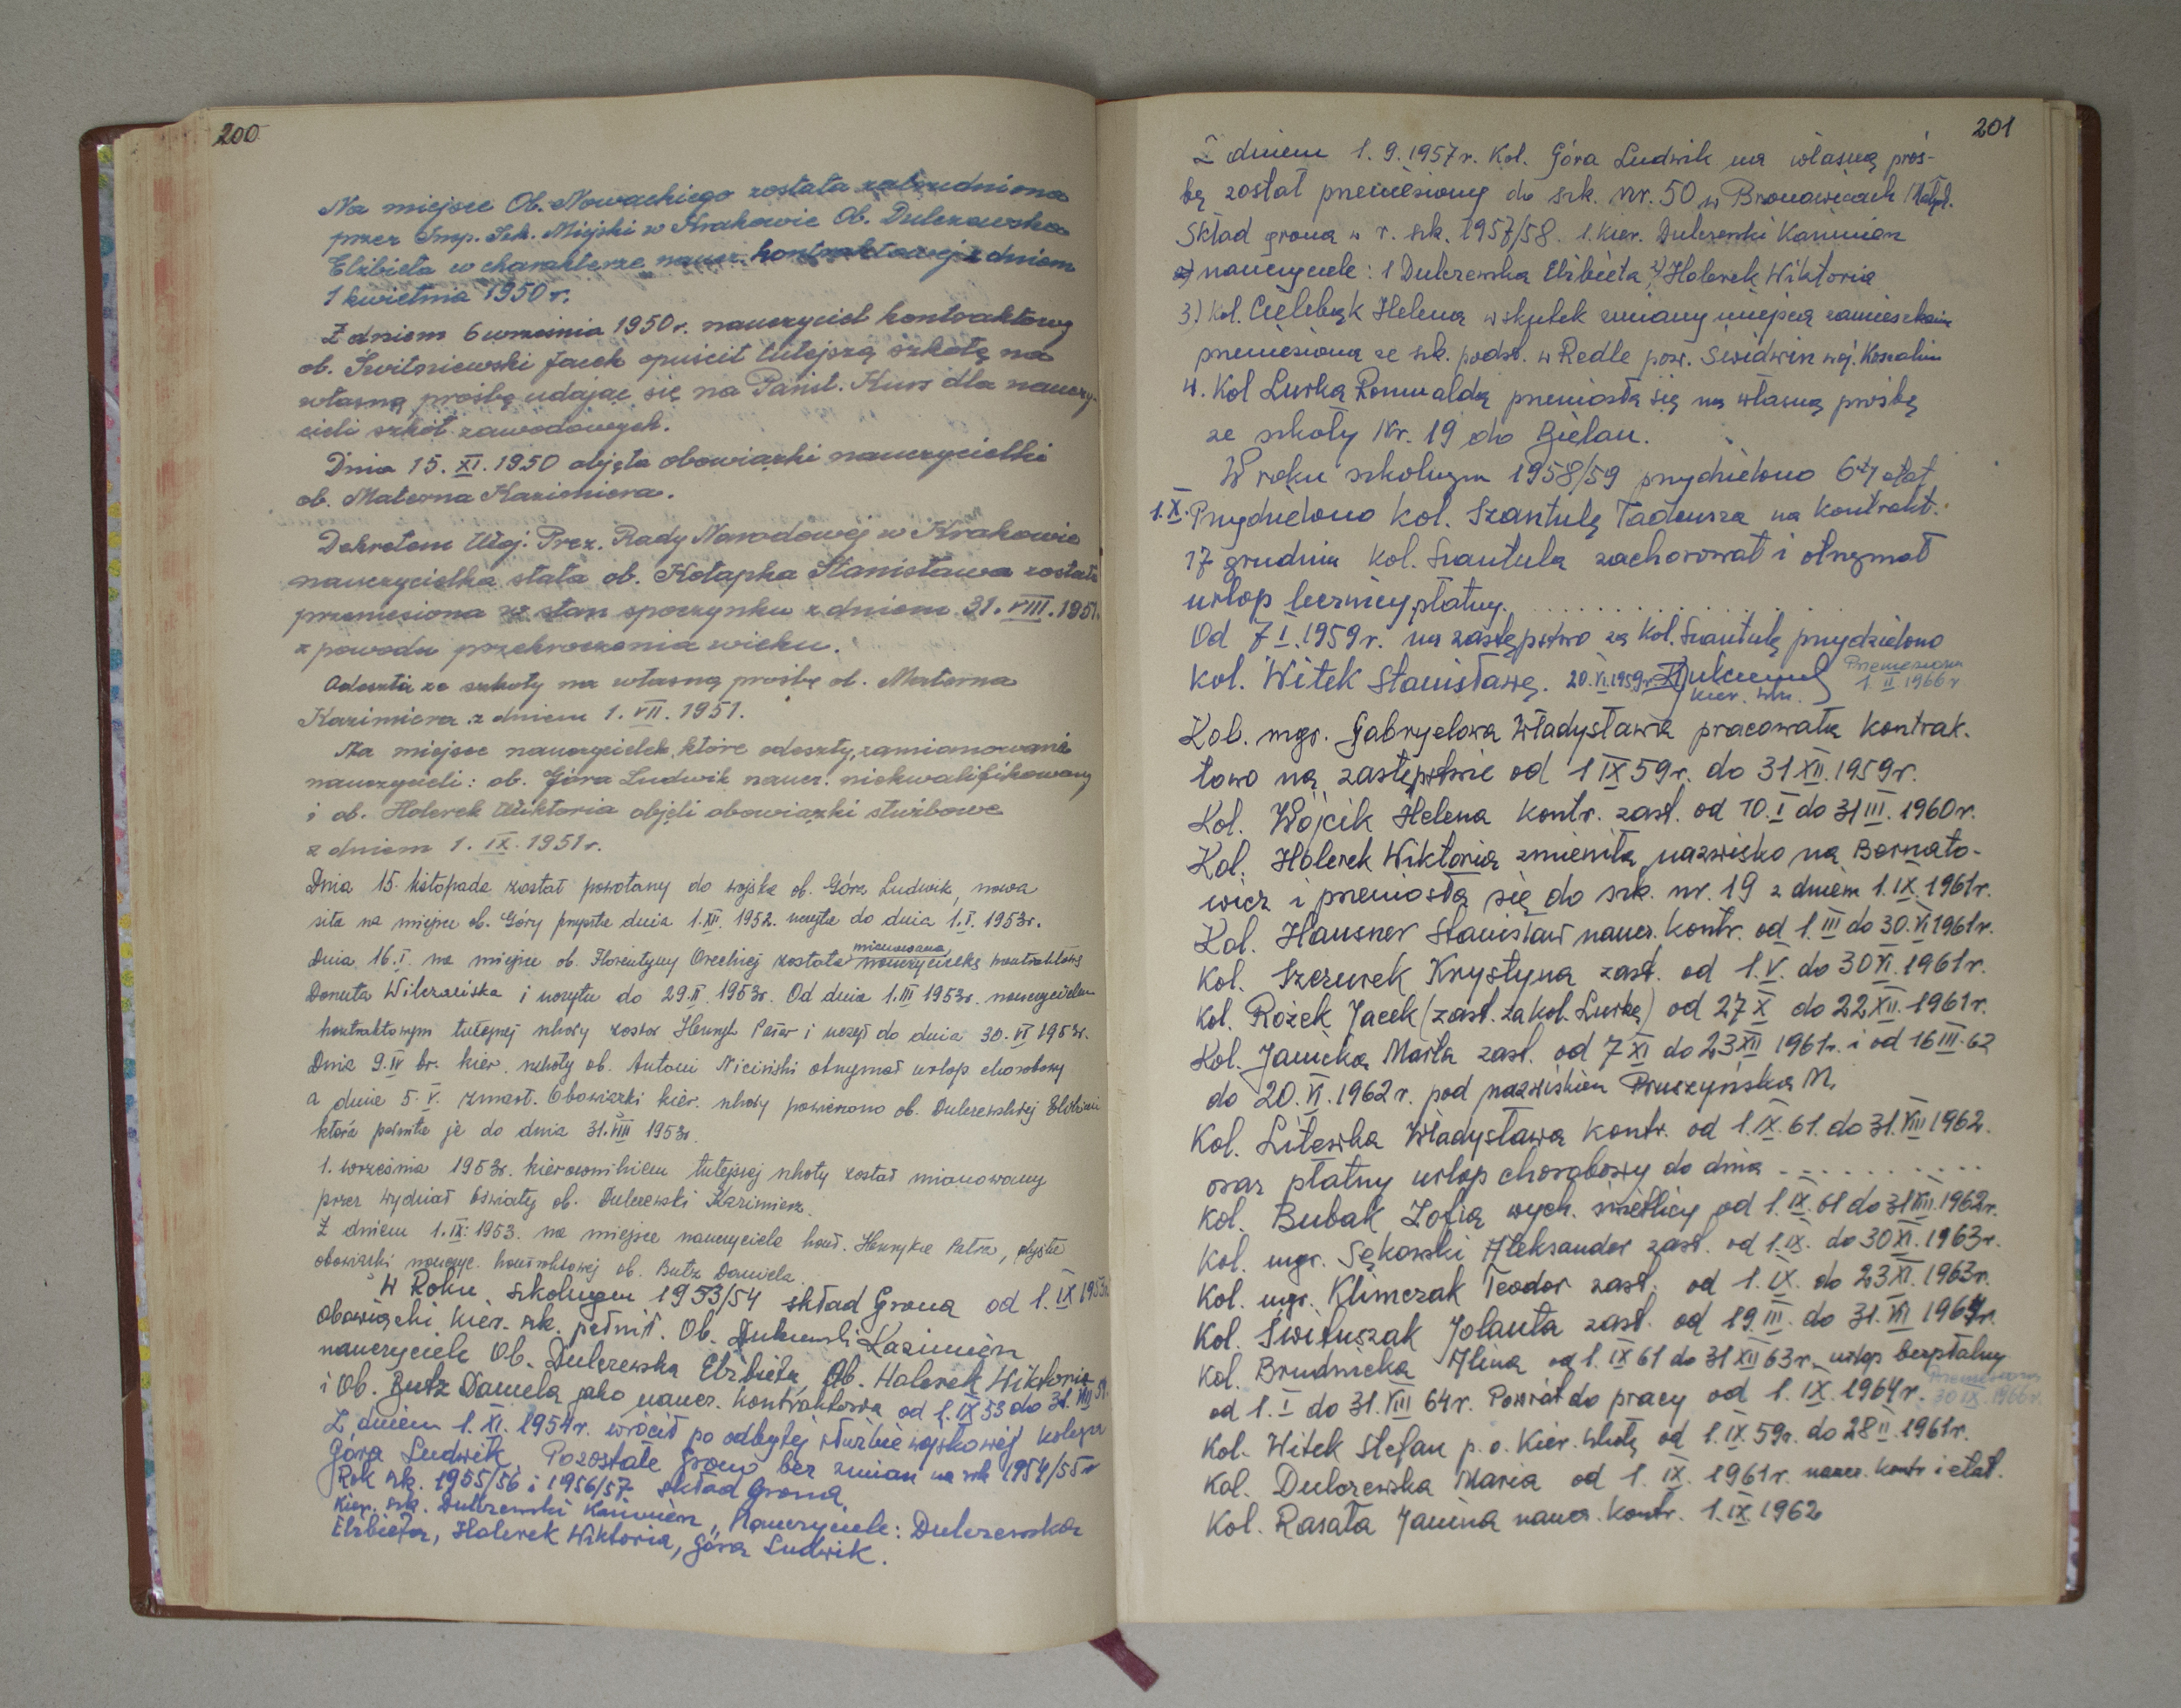 200
Na miejsce Ob. Nowackiego została zatrudniona
przez Insp. Szk. Miejski w Krakowie Ob. Dulczewska
Elżbieta w charakterze naucz. kontraktowej z dniem
1 kwietnia 1950 r.
Z dniem 6 września 1950 r. nauczyciel kontraktowy
ob. Świtoniewski Jacek opuścił tutejszą szkołę na
własną prośbę udając się na Państ. Kurs dla nauczy-
cieli szkół zawodowych.
Dnia 15. XI. 1950 objęła obowiązki nauczycielki
ob. Materna Kazimiera.
Dekretem Woj. Prez. Rady Narodowej w Krakowie
nauczycielka stała ob. Kołapka Stanisława została
przeniesiona w stan spoczynku z dniem 31. VIII. 1951.
z powodu przekroczenia wieku.
Odeszła ze szkoły na własną prośbę ob. Materna
Kazimiera z dniem 1. VII. 1951.
Na miejsce nauczycielek, które odeszły, zamianowani
nauczycieli: ob. Góra Ludwik naucz. niekwalifikowany
i ob. Holerek Wiktoria objęli obowiązki służbowe
z dniem 1. IX. 1951 r.
Dnia 15. listopada został powołany do wojska ob. Góra Ludwik, nowa
siła na miejsce ob. Góry przyszła dnia 1. XII. 1952. uczyła do dnia 1. I. 1953 r.
Dnia 16. I. na miejsce ob. Florentyny Orechiej została mianowana nauczycielką kontraktową
Danuta Wilczańska i uczyła do 29. II. 1953 r. Od dnia 1. III 1953 r. nauczycielem
kontraktowym tutejszej szkoły został Henryk Pater i uczył do dnia 30. VI 1953 r.
Dnia 9. IV br. kier. szkoły ob. Antoni Niciński otrzymał urlop chorobowy
a dnia 5. V. zmarł. Obowiązki kier. szkoły powierzono ob. Dulczewskiej Elżbiecie
która pełniła je do dnia 31. VIII 1953 r.
1. września 1953 r. kierownikiem tutejszej szkoły został mianowany
przez Wydział Oświaty ob. Dulczewski Kazimierz.
Z dniem 1. IX. 1953. na miejsce nauczyciela kont. Henryka Patra, objęła
obowiązki nauczyc. kontraktowej ob. Butz Daniela.
W Roku szkolnym 1953/54 skład Grona od 1. IX 1953 r.
Obowiązki kier. szk. pełnił. Ob. Dulczewski Kazimierz
nauczyciele Ob. Dulczewska Elżbieta, Ob. Holerek Wiktoria
i Ob. Butz Daniela jako naucz. kontraktowa od 1. IX 53 do 31. VIII 54.
Z dniem 1. XI. 1954 r. wrócił po odbytej służbie wojskowej kolega
Góra Ludwik. Pozostałe grono bez zmian na rok 1954/55 r
Rok szk. 1955/56 i 1956/57 skład Grona.
Kier. szk. Dulczewski Kazimierz, Nauczyciele: Dulczewska
Elżbieta, Holerek Wiktoria, Góra Ludwik.
201
Z dniem 1. 9. 1957 r. Kol. Góra Ludwik na własną proś-
bę został przeniesiony do szk. nr. 50 w Bronowicach
Skład grona w r. szk. 1957/58. 1. kier. Dulczewski Kazimierz
2) nauczyciele: 1 Dulczewska Elżbieta 2) Holerek Wiktoria
3.) Kol. Cielebąk Helena wskutek zmiany miejsca zamieszkania
przeniesiona ze szk. podst. w Redle pow. Świdwin woj. Koszalin
4. Kol Lurka Romualda przeniosła się na własną prośbę
ze szkoły Nr. 19 do Bielan.
W roku szkolnym 1958/59 przydzielono 6ty etat
1. X. Przydzielono kol. Szantulę Tadeusza na kontrakt.
17 grudnia kol. Szantula zachorował i otrzymał
urlop leczniczy płatny. . . . . . . . . . . . . .
Od 7 I. 1959 r. na zastępstwo za kol. Szantulę przydzielono
kol. Witek Stanisławę. 20. VI. 1959 r. Dulczewski Przeniesiona
kier. szk. 1. II 1966 r
Kol. mgr. Gabryelowa Władysława pracowała kontrak.
towo na zastępstwie od 1 IX 59 r. do 31 XII. 1959 r.
Kol. Wójcik Helena kontr. zast. od 10. I do 31 III. 1960 r.
Kol. Holerek Wiktoria zmieniła nazwisko na Bernato-
wicz i przeniosła się do szk. nr. 19 z dniem 1. IX. 1961 r.
Kol. Hausner Stanisław naucz. kontr. od 1. III do 30. VI 1961 r.
Kol. Szczurek Krystyna zast. od 1. V. do 30 VI. 1961 r.
Kol. Rożek Jacek (zast. za kol. Lurkę) od 27 X do 22 XII. 1961 r.
Kol. Janicka Marta zast. od 7 XI do 23 XII 1961 r. i od 16 III. 62
do 20. VI. 1962 r. pod nazwiskiem Pruszyńska M.
Kol. Litewka Władysława kontr. od 1. IX. 61. do 31. VIII 1962.
oraz płatny urlop chorobowy do dnia . . . . . . . . . .
Kol. Bubak Zofia wych. świetlicy od 1. IX. 61 do 31 VIII. 1962 r.
Kol. mgr. Sękowski Aleksander zast. od 1. IX. do 30 XI. 1963 r.
Kol. mgr. Klimczak Teodor zast. od 1. IX. do 23 XI. 1963 r.
Kol. Śwituszak Jolanta zast. od 19 III. do 31. VII 1964 r.
Kol. Brudnicka Alina od 1. IX 61 do 31 XII 63 r. urlop bezpłatny
od 1. I do 31. VIII 64 r. Powrót do pracy od 1. IX. 1964 r. Przeniesiona 30 IX. 1966 r.
Kol. Witek Stefan p. o. Kier. szkoły od 1. IX. 59 r. do 28 II. 1961 r.
Kol. Dulczewska Maria od 1. IX. 1961 r. naucz. kontr i etat.
Kol. Rasała Janina naucz. kontr. 1. IX 1962